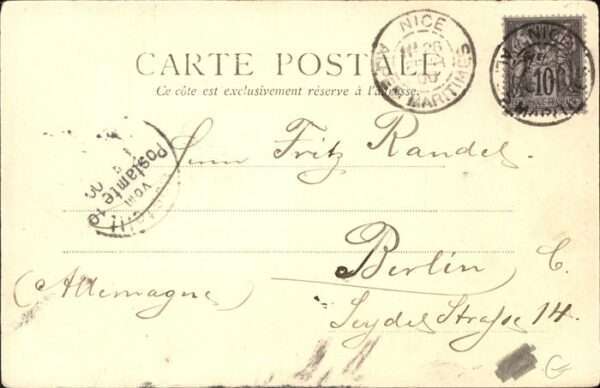 CARTE POSTALE
Ce côté est exclusivement réservé à l'adresse.
NICE
ALPES MARITIMES
NICE
10
Postamte 10
vom
Herrn Fritz Randel.
Berlin C.
(Allemagne)
Seydel Straße 14.